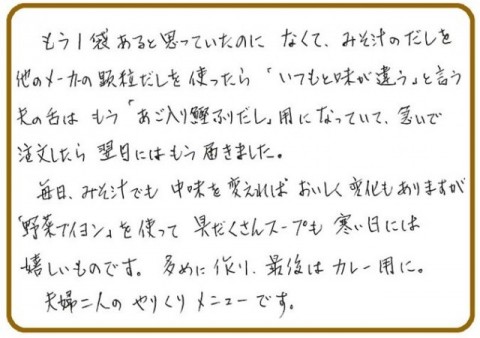 もう1袋あると思っていたのに なくて、みそ汁のだしを
他のメーカーの顆粒だしを使ったら「いつもと味が違う」と言う
夫の舌は もう「あご入り鰹ふりだし」用になっていて、急いで
注文したら 翌日にはもう届きました。
毎日、みそ汁でも 中味を変えれば おいしく変化もありますが
「野菜ブイヨン」を使って 具だくさんスープも 寒い日には
嬉しいものです。多めに作り、最後は カレー用に。
夫婦二人の やりくり メニューです。